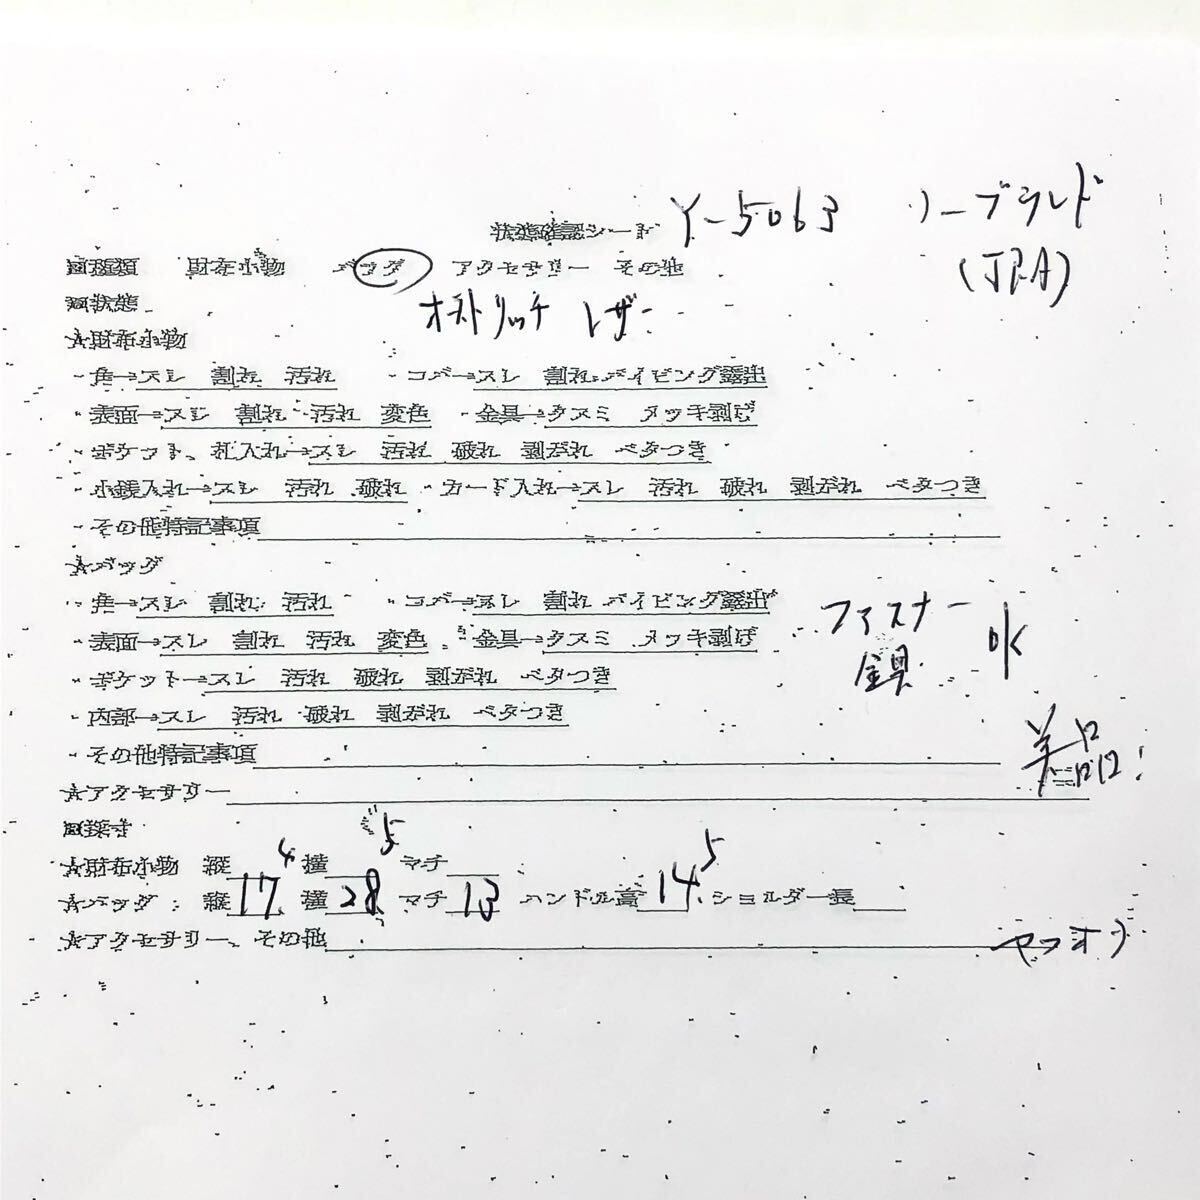 状態確認シート Y-5063 ノーブランド
□種類 財布小物 バッグ アクセサリー その他 (JRA)
□状態 オーストリッチ レザー
☆財布小物
・角→スレ 割れ 汚れ ・コバ→スレ 割れ パイピング露出
・表面→スレ 割れ 汚れ 変色 ・金具→クスミ メッキ剥げ
・ポケット、札入れ→スレ 汚れ 破れ 剥がれ ベタつき
・小銭入れ→スレ 汚れ 破れ ・カード入れ→スレ 汚れ 破れ 剥がれ ベタつき
・その他特記事項
☆バッグ
・角→スレ 割れ 汚れ ・コバ→スレ 割れ パイピング露出 ファスナー
・表面→スレ 割れ 汚れ 変色 ・金具→クスミ メッキ剥げ 金具 OK
・ポケット→スレ 汚れ 破れ 剥がれ ベタつき
・内部→スレ 汚れ 破れ 剥がれ ベタつき
・その他特記事項 美品!
☆アクセサリー
□採寸
☆財布小物 縦 横 マチ
☆バッグ:縦17.4 横28.5 マチ13 ハンドル高14.5 ショルダー長
☆アクセサリー、その他 ヤフオク